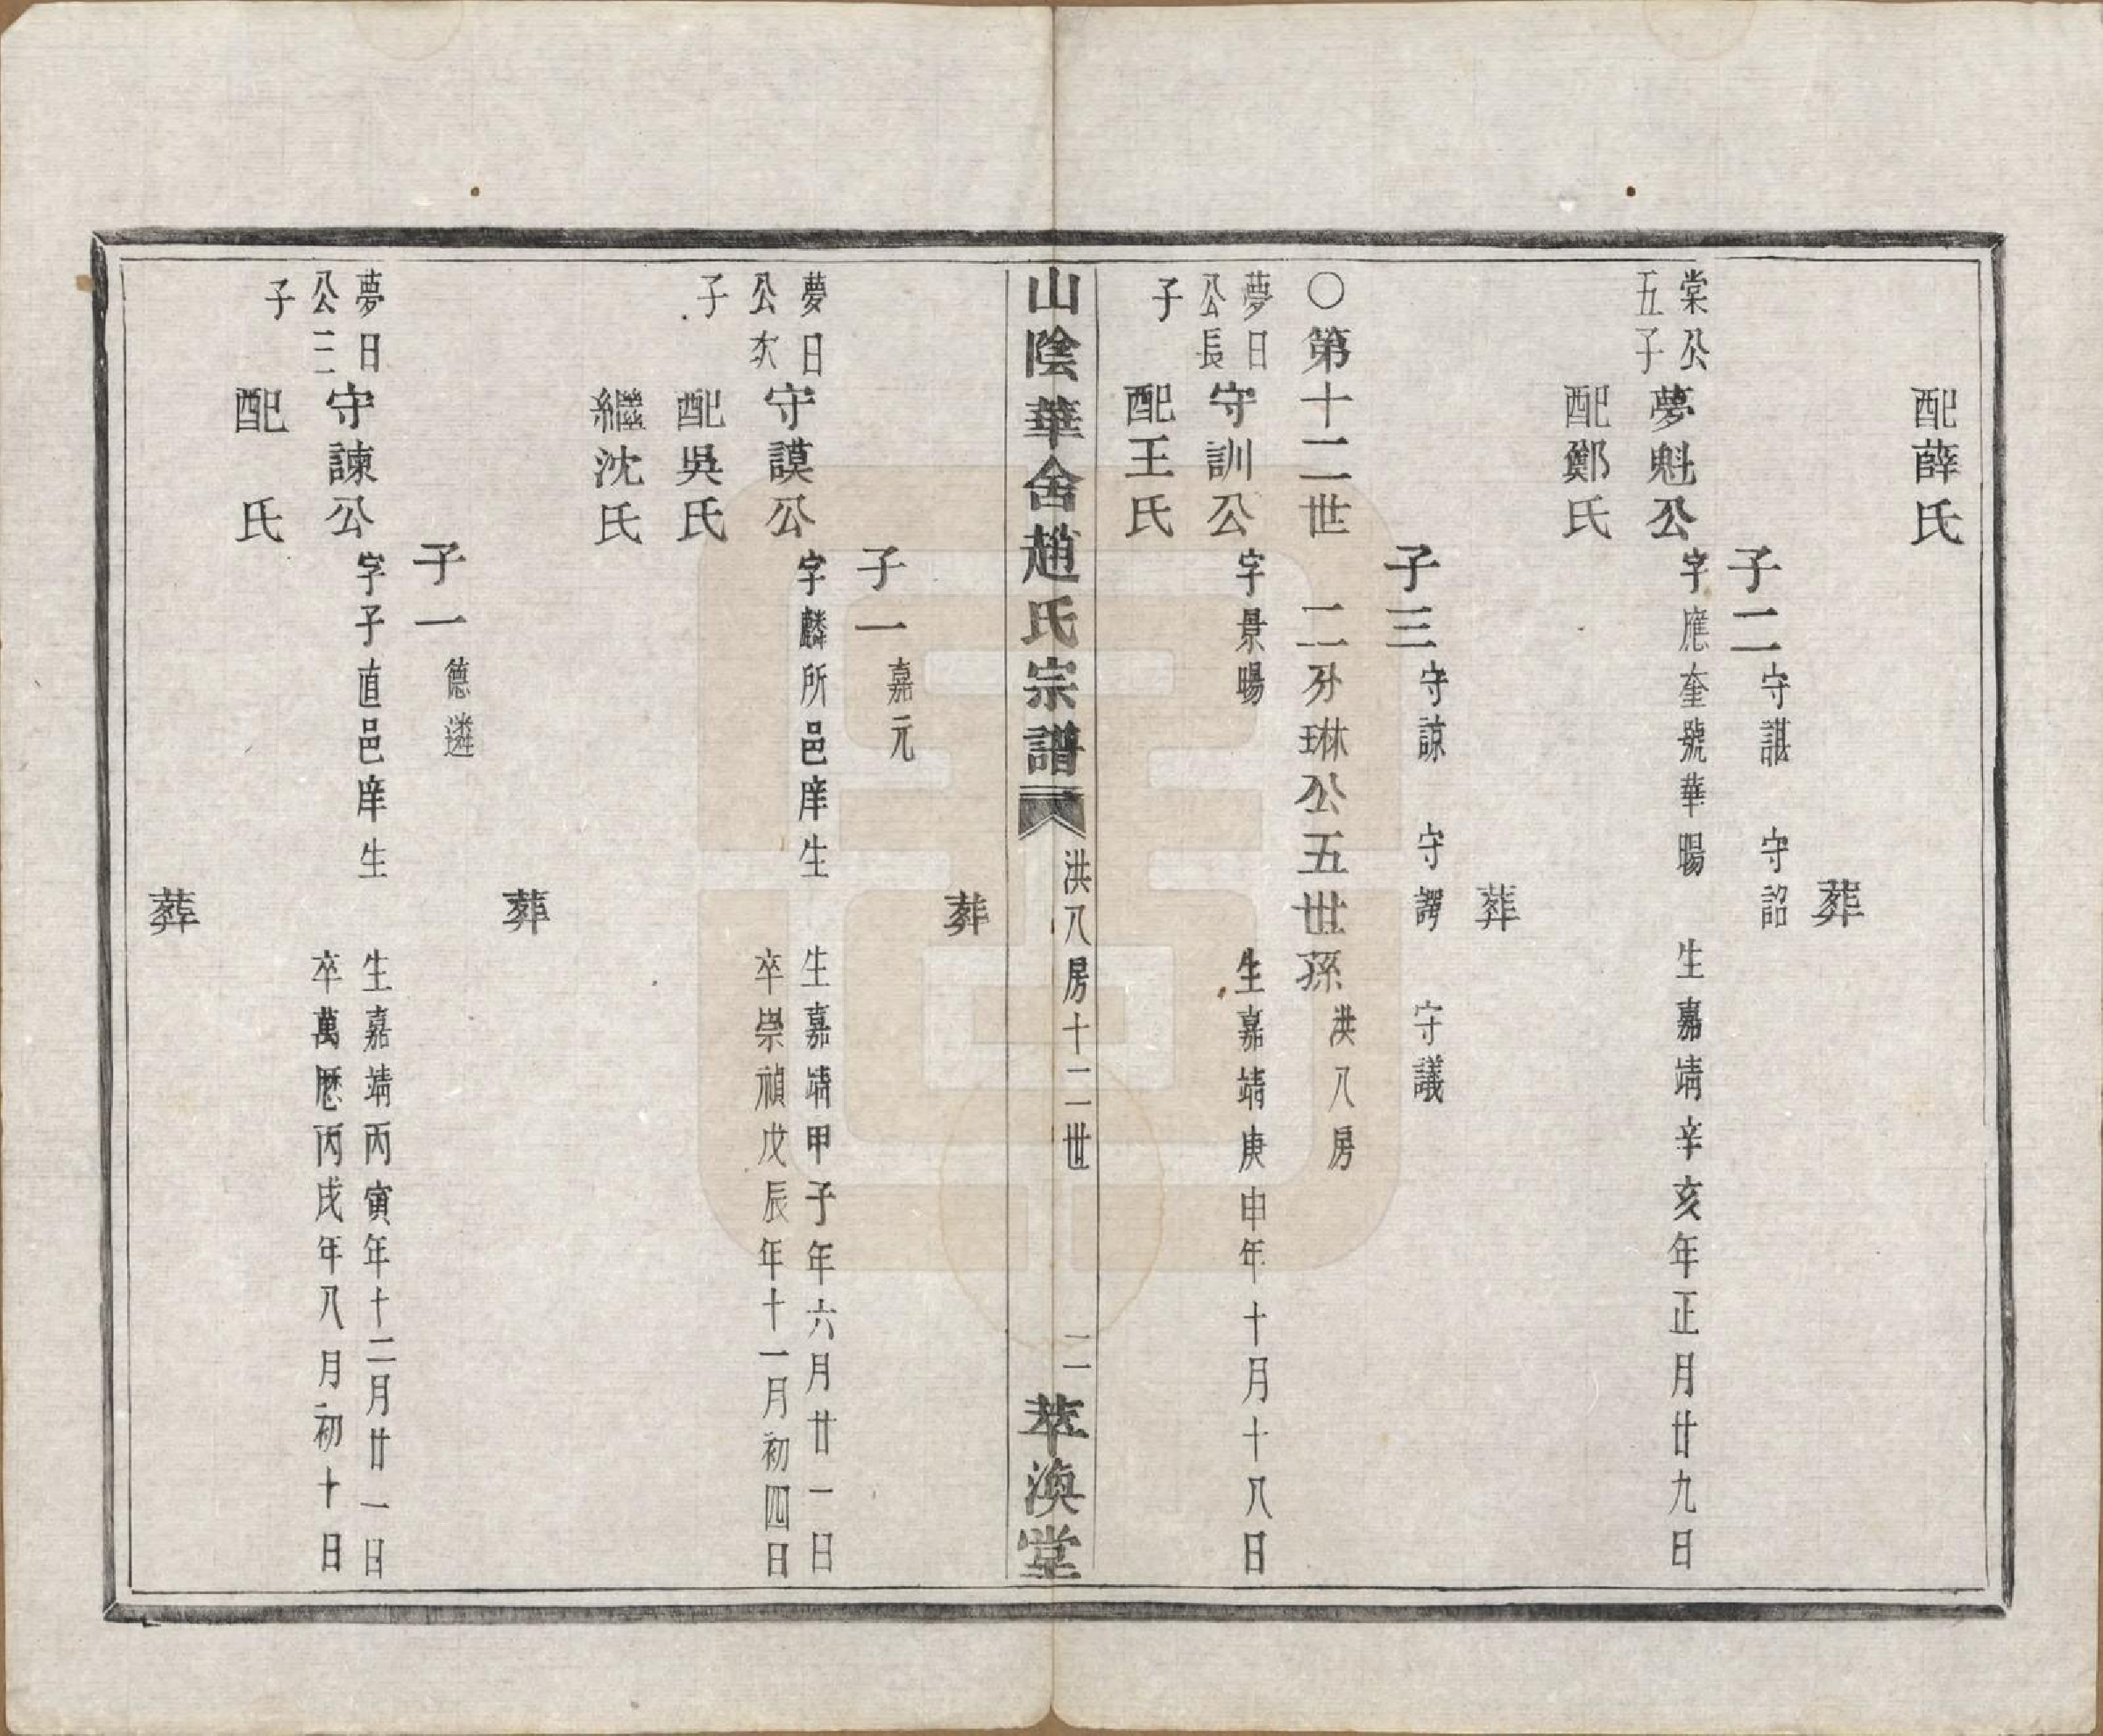 配薛氏
葬
子二守諶 守詔
棠公五子夢魁公字應奎號華暘 生嘉靖辛亥年正月廿九日
配鄭氏
葬
子三守諒 守諤 守議
〇第十二世 二分琳公五世孫洪八房
夢日公長子守訓公字景暘 生嘉靖庚申年十月十八日
配王氏
山陰華舍趙氏宗譜 洪八房十二世 二 萃渙堂
葬
子一嘉元
夢日公次子守謨公字麟所邑庠生 生嘉靖甲子年六月廿一日
卒崇禎戊辰年十一月初四日
配吳氏
繼沈氏
葬
子一德遴
夢日公三子守諫公字子直邑庠生 生嘉靖丙寅年十二月廿一日
卒萬歷丙戌年八月初十日
配 氏
葬